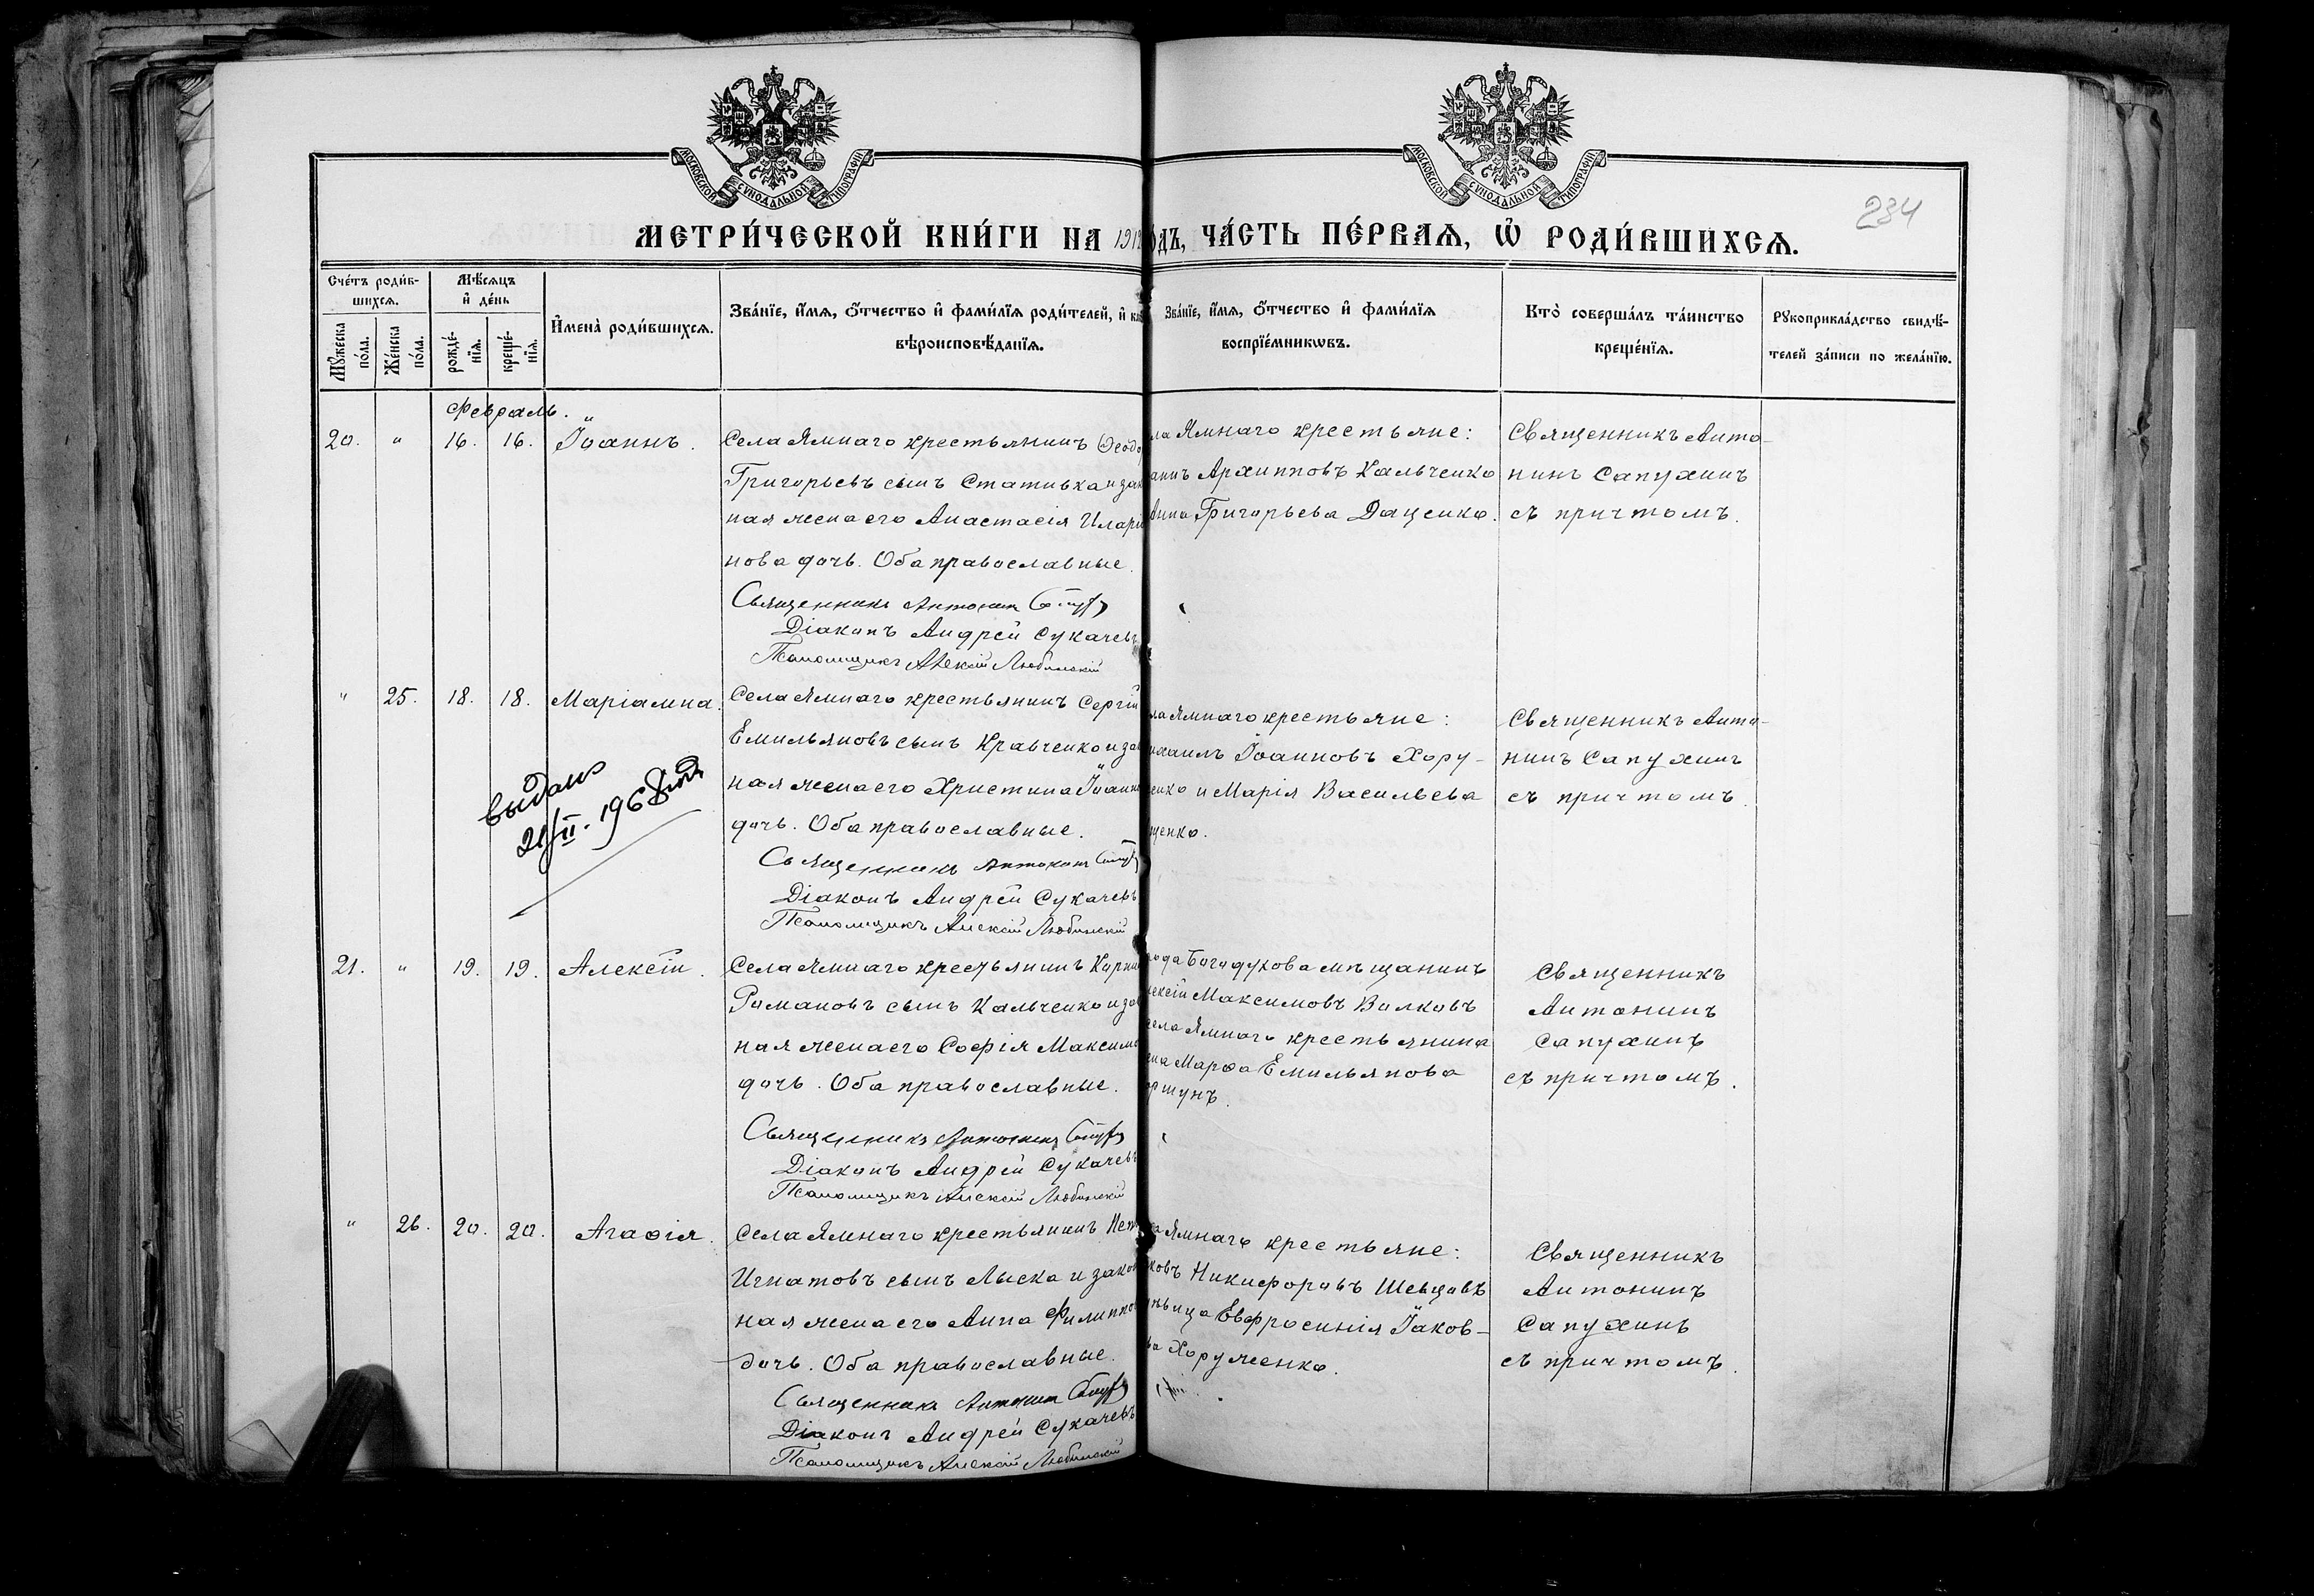 МОСКОВСКОЙ СѴНОДАЛЬНОЙ ТИПОГРАФІИ
МОСКОВСКОЙ СѴНОДАЛЬНОЙ ТИПОГРАФІИ
234
МЕТРИ́ЧЕСКОЙ КНИ́ГИ НА 1912
ОДЪ, ЧА́СТЬ ПЕ́РВАЯ, Ѽ РОДИ́ВШИХСЯ.
Сче́тъ роди́в-
шихся.
Мꙋ́жеска по́ла.
Же́нска по́ла.
Мѣ́сяцъ и҆ де́нь
рожде́-нїѧ.
креще́-нїѧ.
И҆мена̀ роди́вшихся.
Зва́нїе, и҆́мя, ѻ҆́тчество и҆ фами́лїя роди́телей, и҆
вѣроисповѣ́данїя.
Зва́нїе, и҆́мя, ѻ҆́тчество и҆ фами́лїя
воспрїе́мникѡвъ.
Кто̀ соверша́лъ та́инство
креще́нїя.
Рꙋкоприкла́дство свидѣ́-
телей за́писи по жела́нїю.
Февраль.
20. " 16. 16. Іоаннъ.
Села Ямнаго крестьянинъ Ѳеодо
Григорьевъ сынъ Стативка и зак
ная жена его Анастасія Илари
нова дочь. Оба православные.
Священникъ Антонин
Діаконъ Андрей Сукачевъ
Псаломщикъ Алексій Любинскій
ла Ямнаго крестьяне:
аннъ Архипповъ Кальченко
Анна Григорьева Даценко.
Священникъ Анто-
нинъ Сапухинъ
съ причтомъ.
" 25. 18. 18. Маріамна.
выдано
21/II. 1968
Села Ямнаго крестьянинъ Сергій
Емильяновъ сынъ Кравченко и зак
ная жена его Христина Іоанно
дочь. Оба православные.
Священникъ Антонин
Діаконъ Андрей Сукачевъ
Псаломщикъ Алексій Любинскій
ла Ямнаго крестьяне:
ихаилъ Іоанновъ Хору-
енко и Марія Васильева
щенко.
Священникъ Анто-
нинъ Сапухинъ
съ причтомъ.
21. " 19. 19. Алексій.
Села Ямнаго крестьянинъ Корни
Романовъ сынъ Кальченко и зак
ная жена его Софія Максимо
дочь. Оба православные.
Священникъ Антонин
Діаконъ Андрей Сукачевъ
Псаломщикъ Алексій Любинскій
рода Богодухова мѣщанинъ
лексій Максимовъ Волковъ
села Ямнаго крестьянина
ена Марѳа Емильянова
оршунъ.
Священникъ
Антонинъ
Сапухинъ
съ причтомъ.
" 26. 20. 20. Агаѳія.
Села Ямнаго крестьянинъ Пет
Игнатовъ сынъ Лыска и закон
ная жена его Анна Филиппов
дочь. Оба православные.
Священникъ Антонин
Діаконъ Андрей Сукачевъ
Псаломщикъ Алексій Любинскій
ла Ямнаго крестьяне:
ковъ Никифоровъ Шевцовъ
ѣвица Евфросинія Іаков-
ва Хоруженко.
Священникъ
Антонинъ
Сапухинъ
съ причтомъ.